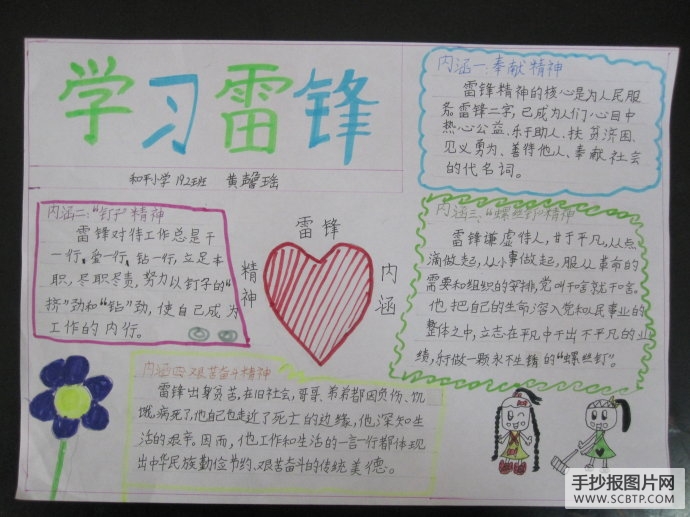 学习雷锋
和平小学 192班 黄馨瑶
内涵一:奉献精神
雷锋精神的核心是为人民服
务.雷锋二字,已成为人们心目中
热心公益、乐于助人、扶贫济困、
见义勇为、善待他人、奉献社会
的代名词。
内涵二:“钉子”精神
雷锋对待工作总是干
一行,爱一行,钻一行,立足本
职,尽职尽责,努力以钉子的“
挤”劲和“钻”劲,使自己成为
工作的内行。
雷锋
精神
内涵
内涵三:“螺丝钉”精神
雷锋谦虚待人,甘于平凡,从点
滴做起,从小事做起,服从革命的
需要和组织的安排,党叫干啥就干啥。
他把自己的生命溶入党和人民事业的
整体之中,立志在平凡中干出不平凡的业
绩,争做一颗永不生锈的“螺丝钉”。
内涵四:艰苦奋斗精神
雷锋出身贫苦,在旧社会,哥哥、弟弟都因负伤、饥
饿,病死了,他自己也走近了死亡的边缘,他,深知生
活的艰辛.因而,他工作和生活的一言一行都体现
出中华民族勤俭节约、艰苦奋斗的传统美德。
手抄报图片网
WWW.SCBTP.COM